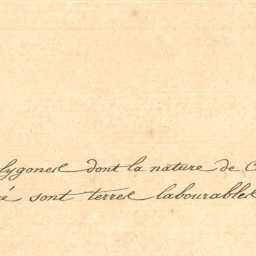 lygones dont la nature de C
é sont terres labourables